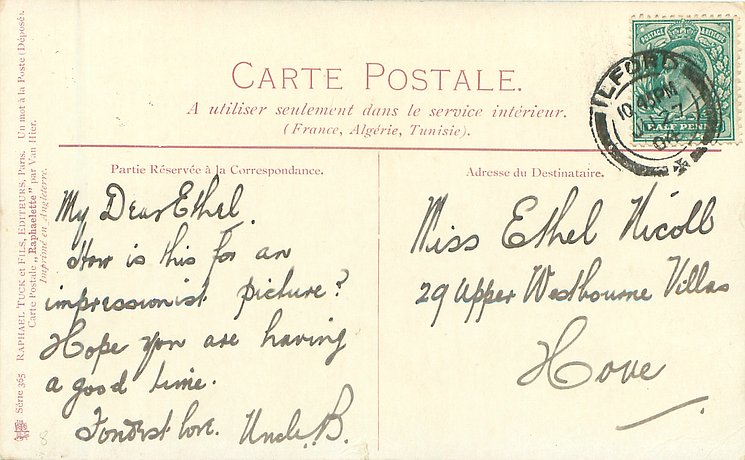 CARTE POSTALE.
A utiliser seulement dans le service intérieur.
(France, Algérie, Tunisie).
POSTAGE
HALF PENNY
ILFORD
10.45PM
27
Partie Réservée à la Correspondance.
My Dear Ethel
How is this for an
impressionist picture?
Hope you are having
a good time.
Fondest love. Uncle B.
Adresse du Destinataire.
Miss Ethel Nicoll
29 Upper Westbourne Villas
Hove
Série 365 RAPHAEL TUCK ET FILS, EDITEURS, Paris. Un mot à la Poste (Déposé).
Carte Postale „Raphaelette" par Van Hier.
Imprimé en Angleterre.